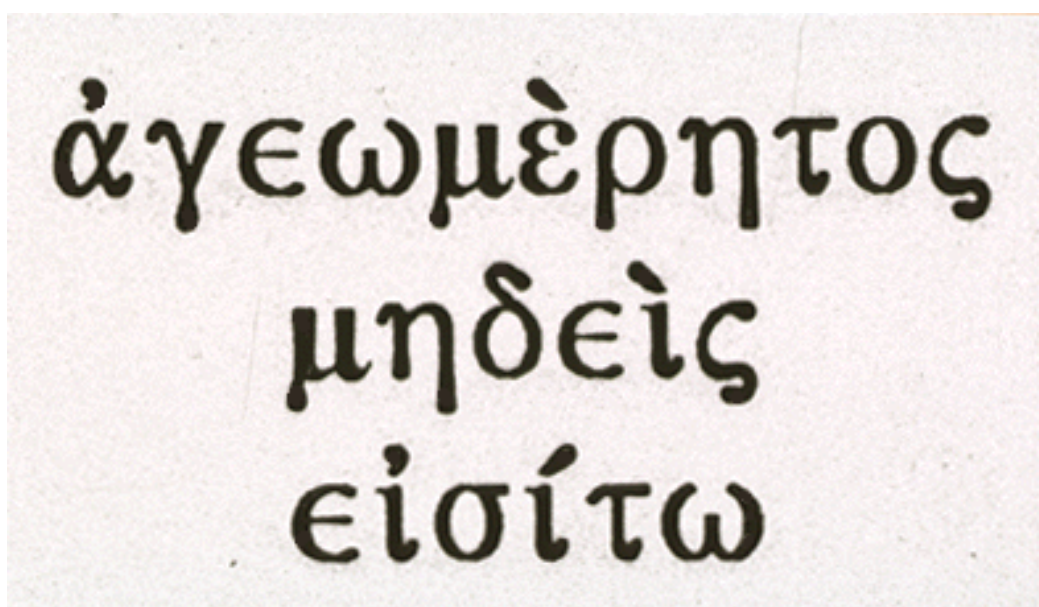 ἀγεωμὲρητος
μηδεὶς
εἰσίτω